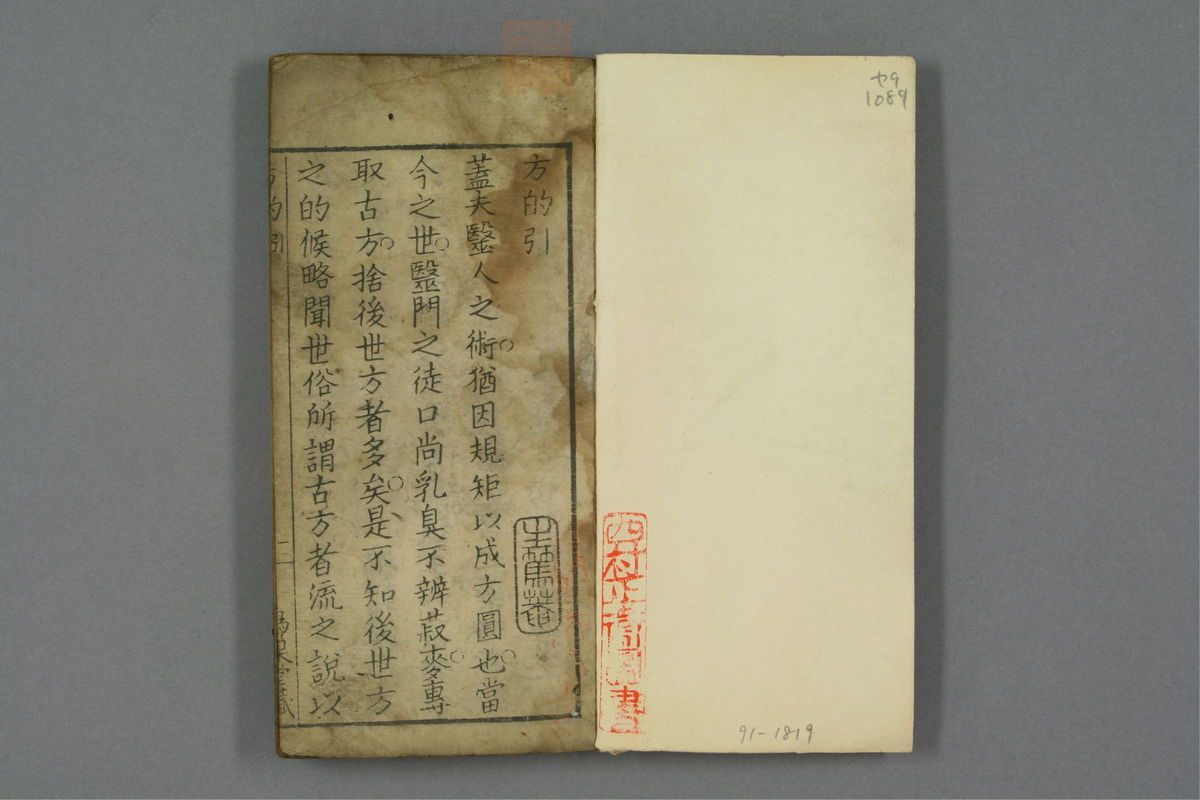 ヤ9
1089
方的引
蓋夫毉人之術猶因規矩以成方圓也當
今之世毉門之徒口尚乳臭不辨菽麥專
取古方捨後世方者多矣是不知後世方
之的候略聞世俗所謂古方者流之說以
方的引
91-1819